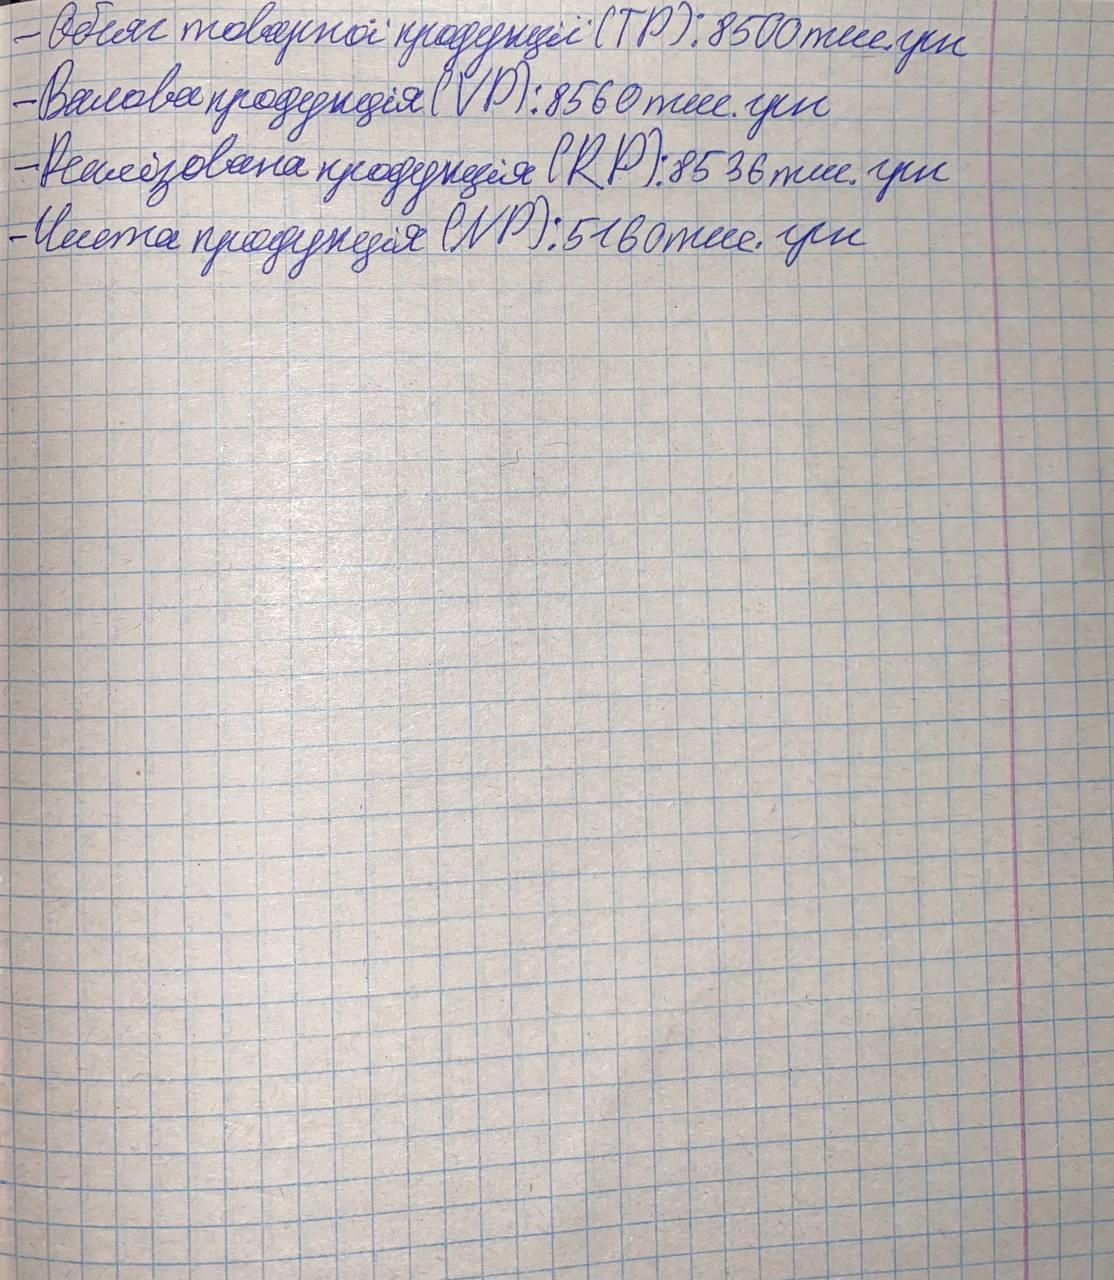 - Обсяг товарної продукції (TP): 8500 тис. грн
- Валова продукція (VP): 8560 тис. грн
- Реалізована продукція (RP): 8536 тис. грн
- Чиста продукція (NP): 5160 тис. грн